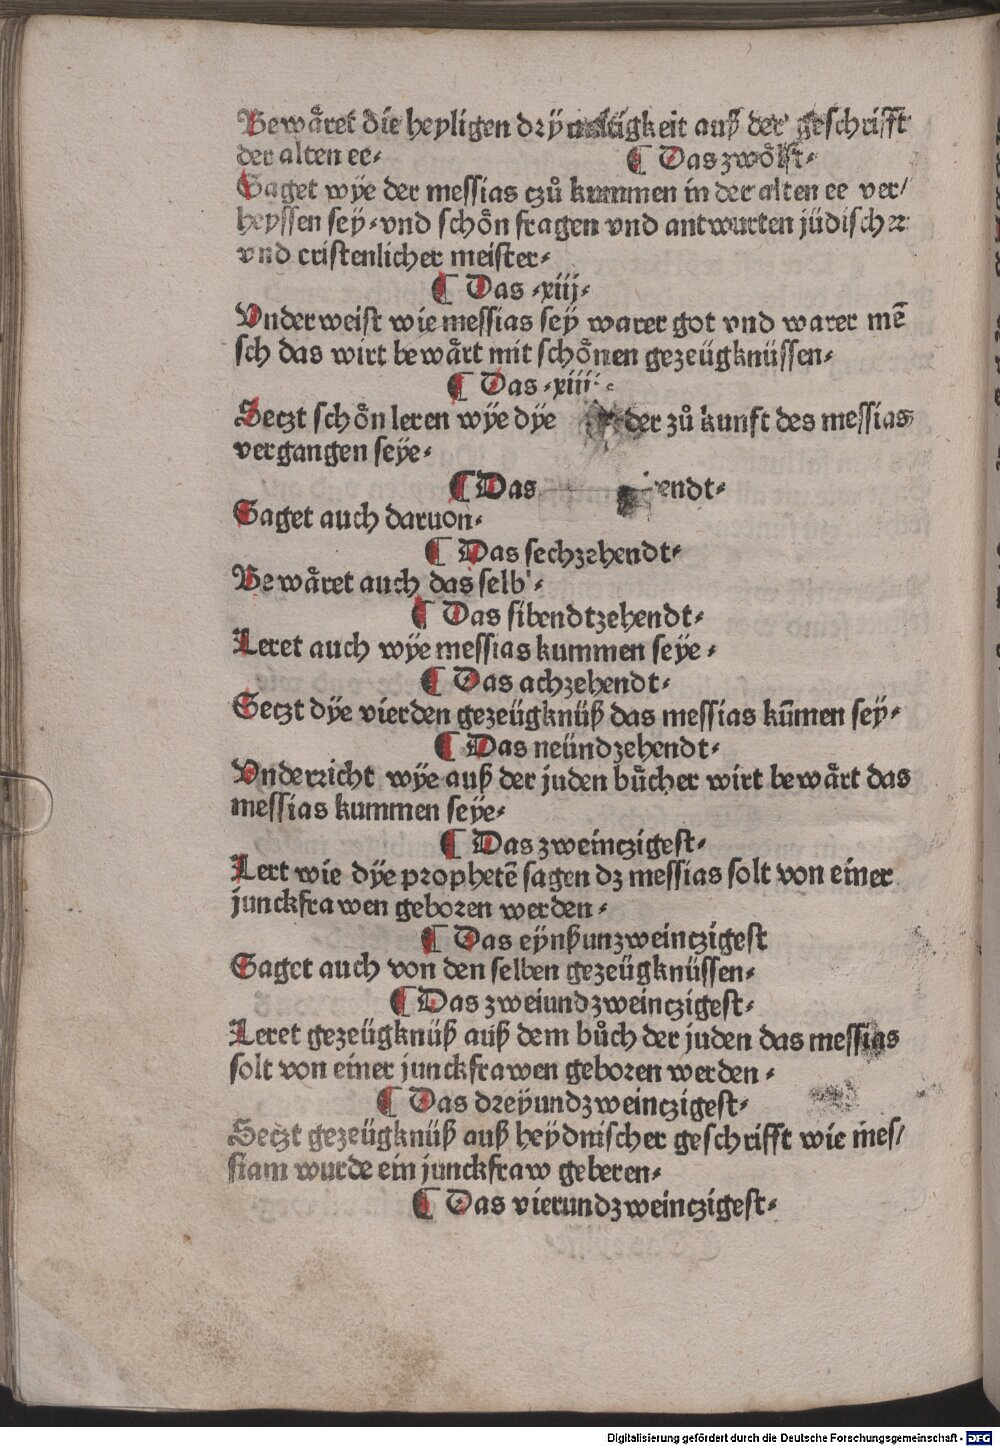 Bewåret die heyligen drÿualtigkeit auß der geschrifft
der alten ee⸗ ¶ Das zwölft⸗
Saget wÿe der messias czů kummen in der alten ee ver/
heyssen sey⸗vnd schön fragen vnd antwurten jüdischer
vnd cristenlicher meister⸗
¶ Das ⸗xiij⸗
Vnderweist wie messias sey warer got vnd warer mē
sch das wirt bewårt mit schönen gezeügknüssen⸗
¶ Das ⸗xiiii⸗
Seczt schön leren wÿe dÿe der zů kunft des messias
vergangen seye⸗
¶ Das endt⸗
Saget auch daruon⸗
¶ Das sechzehendt⸗
Bewåret auch das selb'⸗
¶ Das sibendtzehendt⸗
Leret auch wÿe messias kummen seye⸗
¶ Das achzehendt⸗
Seczt dÿe vierden gezeügknüß das messias kūmen sey⸗
¶ Das neündzehendt⸗
Vnderricht wÿe auß der juden bůcher wirt bewårt das
messias kummen seye⸗
¶ Das zweinczigest⸗
Lert wie dÿe prophetē sagen dz messias solt von einer
junckfrawen geboren werden⸗
¶ Das eÿnßunzweinczigest
Saget auch von den selben gezeügknüssen⸗
¶ Das zweiundzweinczigest⸗
Leret gezeügknüß auß dem bůch der juden das messias
solt von einer junckfrawen geboren werden⸗
¶ Das dreÿundzweinczigest⸗
Seczt gezeügknüß auß heÿdnischer geschrifft wie mes/
siam wurde ein junckfraw geberen⸗
¶ Das vierundzweinczigest⸗
Digitalisierung gefördert durch die Deutsche Forschungsgemeinschaft - DFG